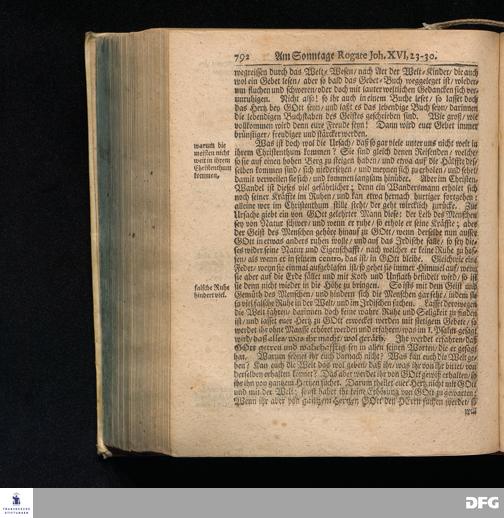 792 Am Sonntage Rogate Joh. XVI, 23-30.
wegreissen durch das Welt-Wesen/ nach Art der Welt-Kinder/ die auch
wol ein Gebet lesen/ aber so bald das Gebet-Buch weggeleget ist/ wieder-
um fluchen und schweren/ oder doch mit lauter weltlichen Gedancken sich ver-
unruhigen. Nicht also! so ihr auch in einem Buche leset/ so lasset doch
das Hertz bey GOtt seyn/ und laßt es das lebendige Buch seyn/ darinnen
die lebendigen Buchstaben des Geistes geschrieben sind. Wie groß/ wie
vollkommen wird denn eure Freude seyn! Dann wird euer Gebet immer
brünstiger/ freudiger und stärcker werden.
warum die
meisten nicht
weit in ihrem
Christenthum
kommen,
Was ist doch wol die Ursach/ daß so gar viele unter uns nicht weit in
ihrem Christenthum kommen? Sie sind gleich denen Reisenden/ welche/
so sie auf einen hohen Berg zu steigen haben/ und etwa auf die Hälffte des-
selben kommen sind/ sich niedersetzen/ und meynen sich zu erholen/ und
damit verweilen sie sich/ und kommen langsam hinüber. Aber im Christen-
Wandel ist dieses viel gefährlicher; denn ein Wandersmann erholet sich
noch seiner Kräffte im Ruhen/ und kan etwa hernach hurtiger fortgehen;
alleine wer im Christenthum stille stehet/ der geht würcklich zurücke. Zur
Ursache giebt ein von GOtt gelehrter Mann diese: der Leib des Menschen
sey von Natur schwer/ und wenn er ruhe/ so erhole er seine Kräffte; aber
der Geist des Menschen gehöre hinauf zu GOtt/ wenn derselbe nun ausser
GOtt in etwas anders ruhen wolle/ und auf das Irdische falle/ so sey die-
ses wider seine Natur und Eigenschafft/ nach welcher er keine Ruhe zu has-
sen/ als wenn er in seinem centro, das ist/ in GOtt bleibe. Gleichwie eine
Feder/ wenn sie einmal aufgeblasen ist/ so gehet sie immer Himmel auf/ wenn
sie aber auf die Erd fället und mit Koth und Unflath besudelt wird/ so ist
falsche Ruhe
hindert viel.
sie denn nicht wieder in die Höhe zu bringen. So ists mit dem Geist und
Gemüth des Menschen/ und hindern sich die Menschen gar sehr/ indem sie
so viel falsche Ruhe in der Welt/ und im Irdischen suchen. Lasset deswegen
die Welt fahren/ darinnen doch keine wahre Ruhe und Seligkeit zu finden
ist/ und lasset euer Hertz zu GOtt erwecket werden mit stetigem Gebete/ so
werdet ihr ohne Maasse erhöret werden und erfahren/ was im 1. Psalm gesagt
wird/ daß alles/ was ihr macht/ wol geräth. Ihr werdet erfahren/ daß
GOtt getreu und wahrhafftig sey in allen seinen Worten/ die er gesagt
hat. Warum sehnet ihr euch darnach nicht? Was kan euch die Welt ge-
ben? Kan euch die Welt das wol geben/ daß ihr/ was ihr von ihr bittet/ von
derselben erhalten könnet? Das aber werdet ihr von GOtt gewiß erhalten/ so
ihr ihn von gantzem Hertzen suchet. Darum theilet euer Hertz nicht mit GOtt
und mit der Welt; sonst habet ihr keine Erhörung von GOtt zu gewarten;
Wenn ihr aber von gantzem Hertzen GOtt den HErrn suchen werdet/ so
FRANCKESCHE
STIFTUNGEN
DFG